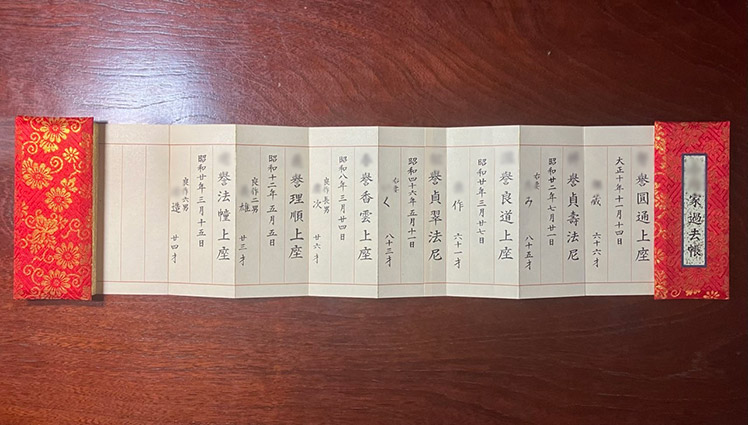 家過去帳
譽圓通上座
大正十年十一月十四日
蔵 六十六才
譽貞壽法尼
昭和廿二年七月廿一日
右妻
み 八十五才
譽良道上座
昭和廿年三月廿七日
作 六十一才
譽貞翠法尼
昭和四十六年五月十一日
右妻
く 八十三才
譽香雲上座
昭和八年三月廿四日
良作長男
次 廿六才
譽理順上座
昭和十二年五月五日
良作二男
雄 廿三才
譽法幢上座
昭和廿年三月十五日
良作六男
造 廿四才